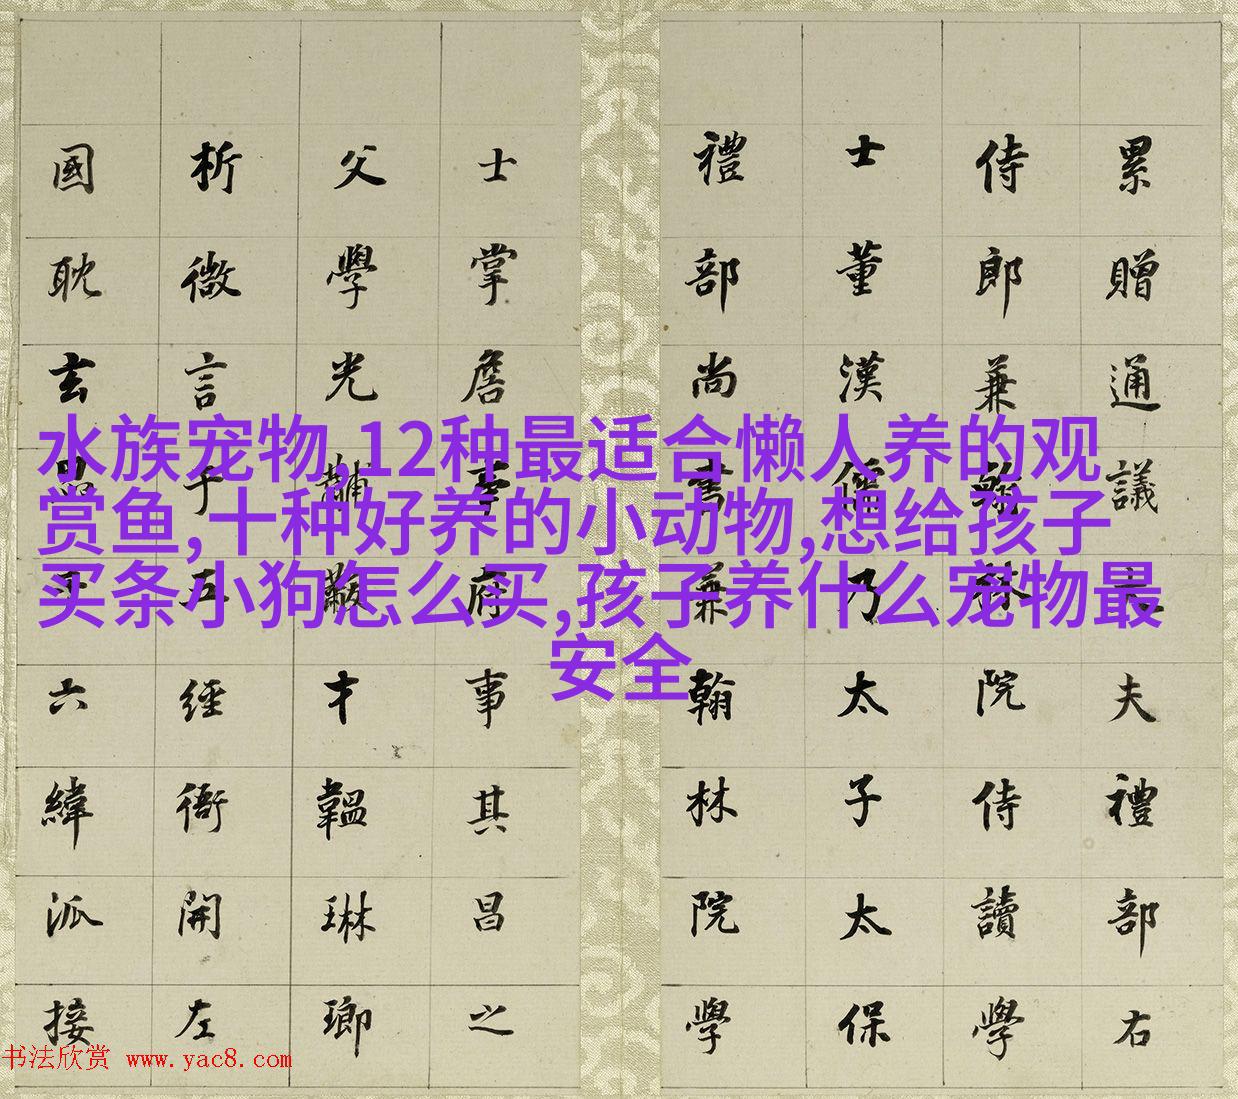 水族宠物,12种最适合懒人养的观
赏鱼,十种好养的小动物,想给孩子
买条小狗怎么买,孩子养什么宠物最
安全
累贈通議大夫禮部右
侍郎兼翰林院侍讀學
士董漢儒乃太子太保
禮部尚書兼翰林院學
士掌詹事府事其昌之
父學光黼黻才韞琳瑯
析微言于五經衙開左
國耽玄六緯派接
书法欣赏 www.yac8.com